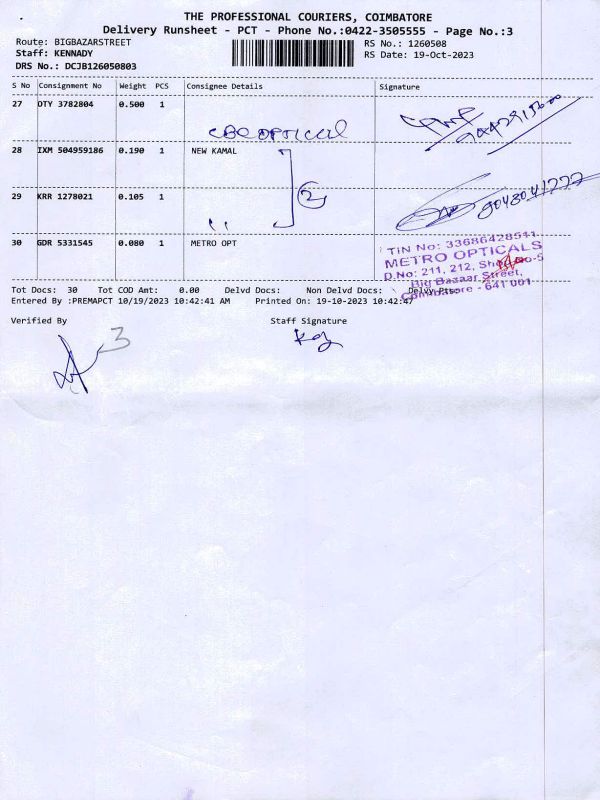 THE PROFESSIONAL COURIERS, COIMBATORE
Delivery Runsheet - PCT - Phone No.:0422-3505555 - Page No.:3
Route: BIGBAZARSTREET RS No.: 1260508
Staff: KENNADY RS Date: 19-Oct-2023
DRS No.: DCJB126050803
S No Consignment No Weight PCS Consignee Details Signature
27 OTY 3782804 0.500 1
CBE OPTICAL
28 IXM 504959186 0.190 1 NEW KAMAL
2
29 KRR 1278021 0.105 1
8048041777
30 GDR 5331545 0.080 1 METRO OPT
TIN No: 33686428511
METRO OPTICALS
D.No: 211, 212, Shop No-5
Big Bazaar Street,
Coimbatore - 641 001
Tot Docs: 30 Tot COD Amt: 0.00 Delvd Docs: Non Delvd Docs: Delvy Pts:
Entered By :PREMAPCT 10/19/2023 10:42:41 AM Printed On: 19-10-2023 10:42:47
Verified By Staff Signature
3